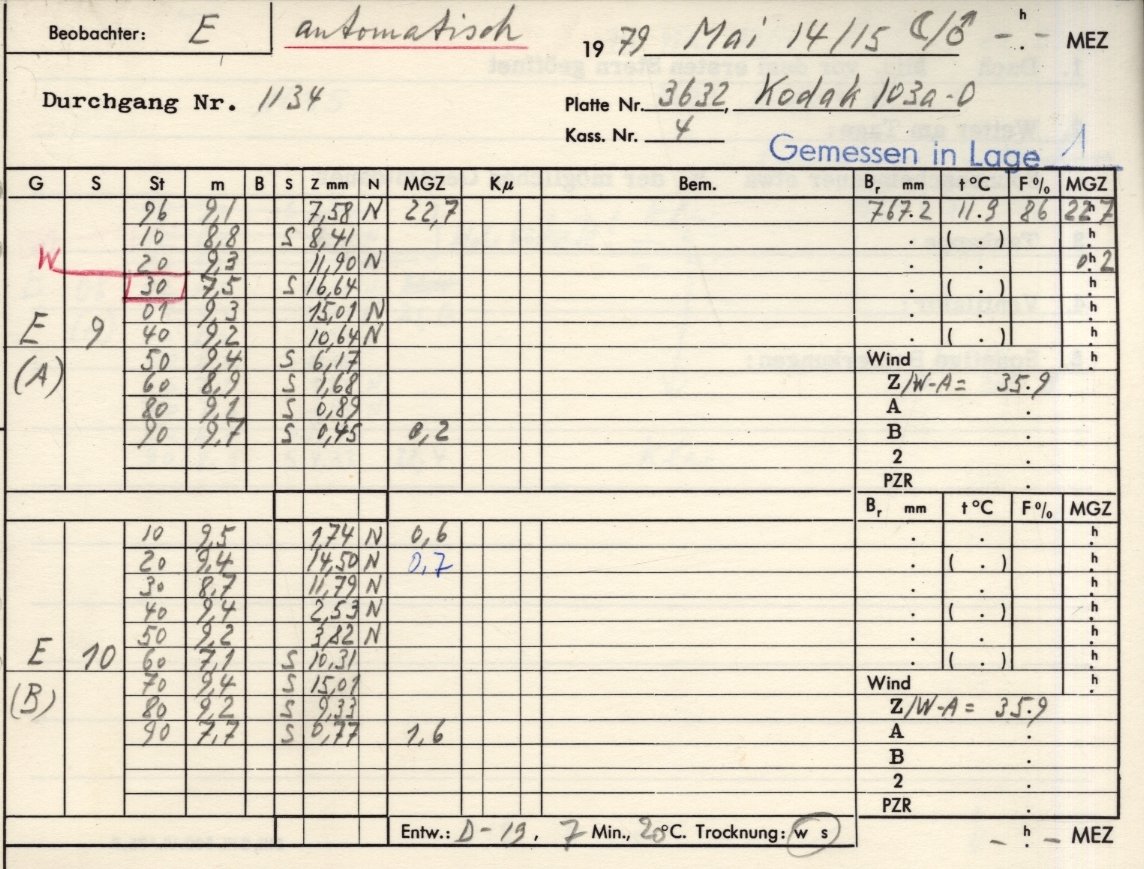 Beobachter: E automatisch 19 79 Mai 14/15 ☾/♂ - . - h MEZ
Durchgang Nr. 1134 Platte Nr. 3632, Kodak 103a-O
Kass. Nr. 4
Gemessen in Lage 1
G S St m B S Z mm N MGZ Kμ Bem. Br mm t °C F% MGZ
96 9,1 7,58 N 22,7 767.2 11.9 86 22h7
10 8,8 S 8,41 . ( . ) h
W 20 9,3 11,90 N . . 0h2
30 7,5 S 16,64 . ( . ) h
01 9,3 15,01 N . . h
E 9 40 9,2 10,64 N . ( . ) h
(A) 50 9,4 S 6,17 Wind h
60 8,9 S 1,68 Z/W-A = 35.9
80 9,1 S 0,89 A .
90 9,7 S 0,45 0,2 B .
2 .
PZR .
Br mm t °C F% MGZ
10 9,5 1,74 N 0,6 . . h
20 9,4 14,50 N 0,7 . ( . ) h
30 8,7 11,79 N . . h
40 9,4 2,53 N . ( . ) h
50 9,2 3,82 N . . h
E 10 60 7,1 S 10,31 . ( . ) h
(B) 70 9,4 S 15,01 Wind h
80 9,2 S 9,33 Z/W-A = 35.9
90 7,7 S 0,77 1,6 A .
B .
2 .
PZR .
Entw.: D-19, 7 Min., 20°C. Trocknung: w s - h - MEZ